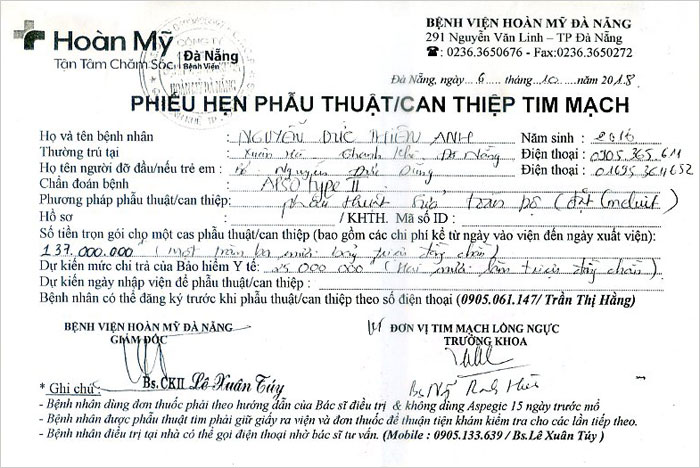 Hoàn Mỹ
Tận Tâm Chăm Sóc
Đà Nẵng
Bệnh Viện
BỆNH VIỆN HOÀN MỸ ĐÀ NẴNG
291 Nguyễn Văn Linh – TP Đà Nẵng
☎: 0236.3650676 - Fax:0236.3650272
Đà Nẵng, ngày 6 tháng 10 năm 2018
PHIẾU HẸN PHẪU THUẬT/CAN THIỆP TIM MẠCH
Họ và tên bệnh nhân : NGUYỄN ĐỨC THIÊN ANH Năm sinh : 2016
Thường trú tại : Xuân Hà Thanh Khê Đà Nẵng Điện thoại : 0905.365.611
Họ tên người đỡ đầu/nếu trẻ em : Nguyễn Đức Dũng Điện thoại :
Chẩn đoán bệnh : APSO type II
Phương pháp phẫu thuật/can thiệp: phẫu thuật sửa toàn bộ (đặt Conduit)
Hồ sơ : / KHTH. Mã số ID :
Số tiền trọn gói cho một cas phẫu thuật/can thiệp (bao gồm các chi phí kể từ ngày vào viện đến ngày xuất viện):
137.000.000 (một trăm ba mươi bảy triệu đồng chẵn)
Dự kiến mức chi trả của Bảo hiểm Y tế: 25 000 000 (Hai mươi lăm triệu đồng chẵn)
Dự kiến ngày nhập viện để phẫu thuật/can thiệp :
Bệnh nhân có thể đăng ký trước khi phẫu thuật/can thiệp theo số điện thoại (0905.061.147/ Trần Thị Hằng)
BỆNH VIỆN HOÀN MỸ ĐÀ NẴNG
GIÁM ĐỐC
ĐƠN VỊ TIM MẠCH LỒNG NGỰC
TRƯỞNG KHOA
Bs.CKII Lê Xuân Túy
* Ghi chú:
- Bệnh nhân dùng đơn thuốc phải theo hướng dẫn của Bác sĩ điều trị & không dùng Aspegic 15 ngày trước mổ
- Bệnh nhân được phẫu thuật tim phải giữ giấy ra viện và đơn thuốc để thuận tiện khám kiểm tra cho các lần tiếp theo.
- Bệnh nhân điều trị tại nhà có thể gọi điện thoại nhờ bác sĩ tư vấn. (Mobile : 0905.133.639 / Bs.Lê Xuân Túy )